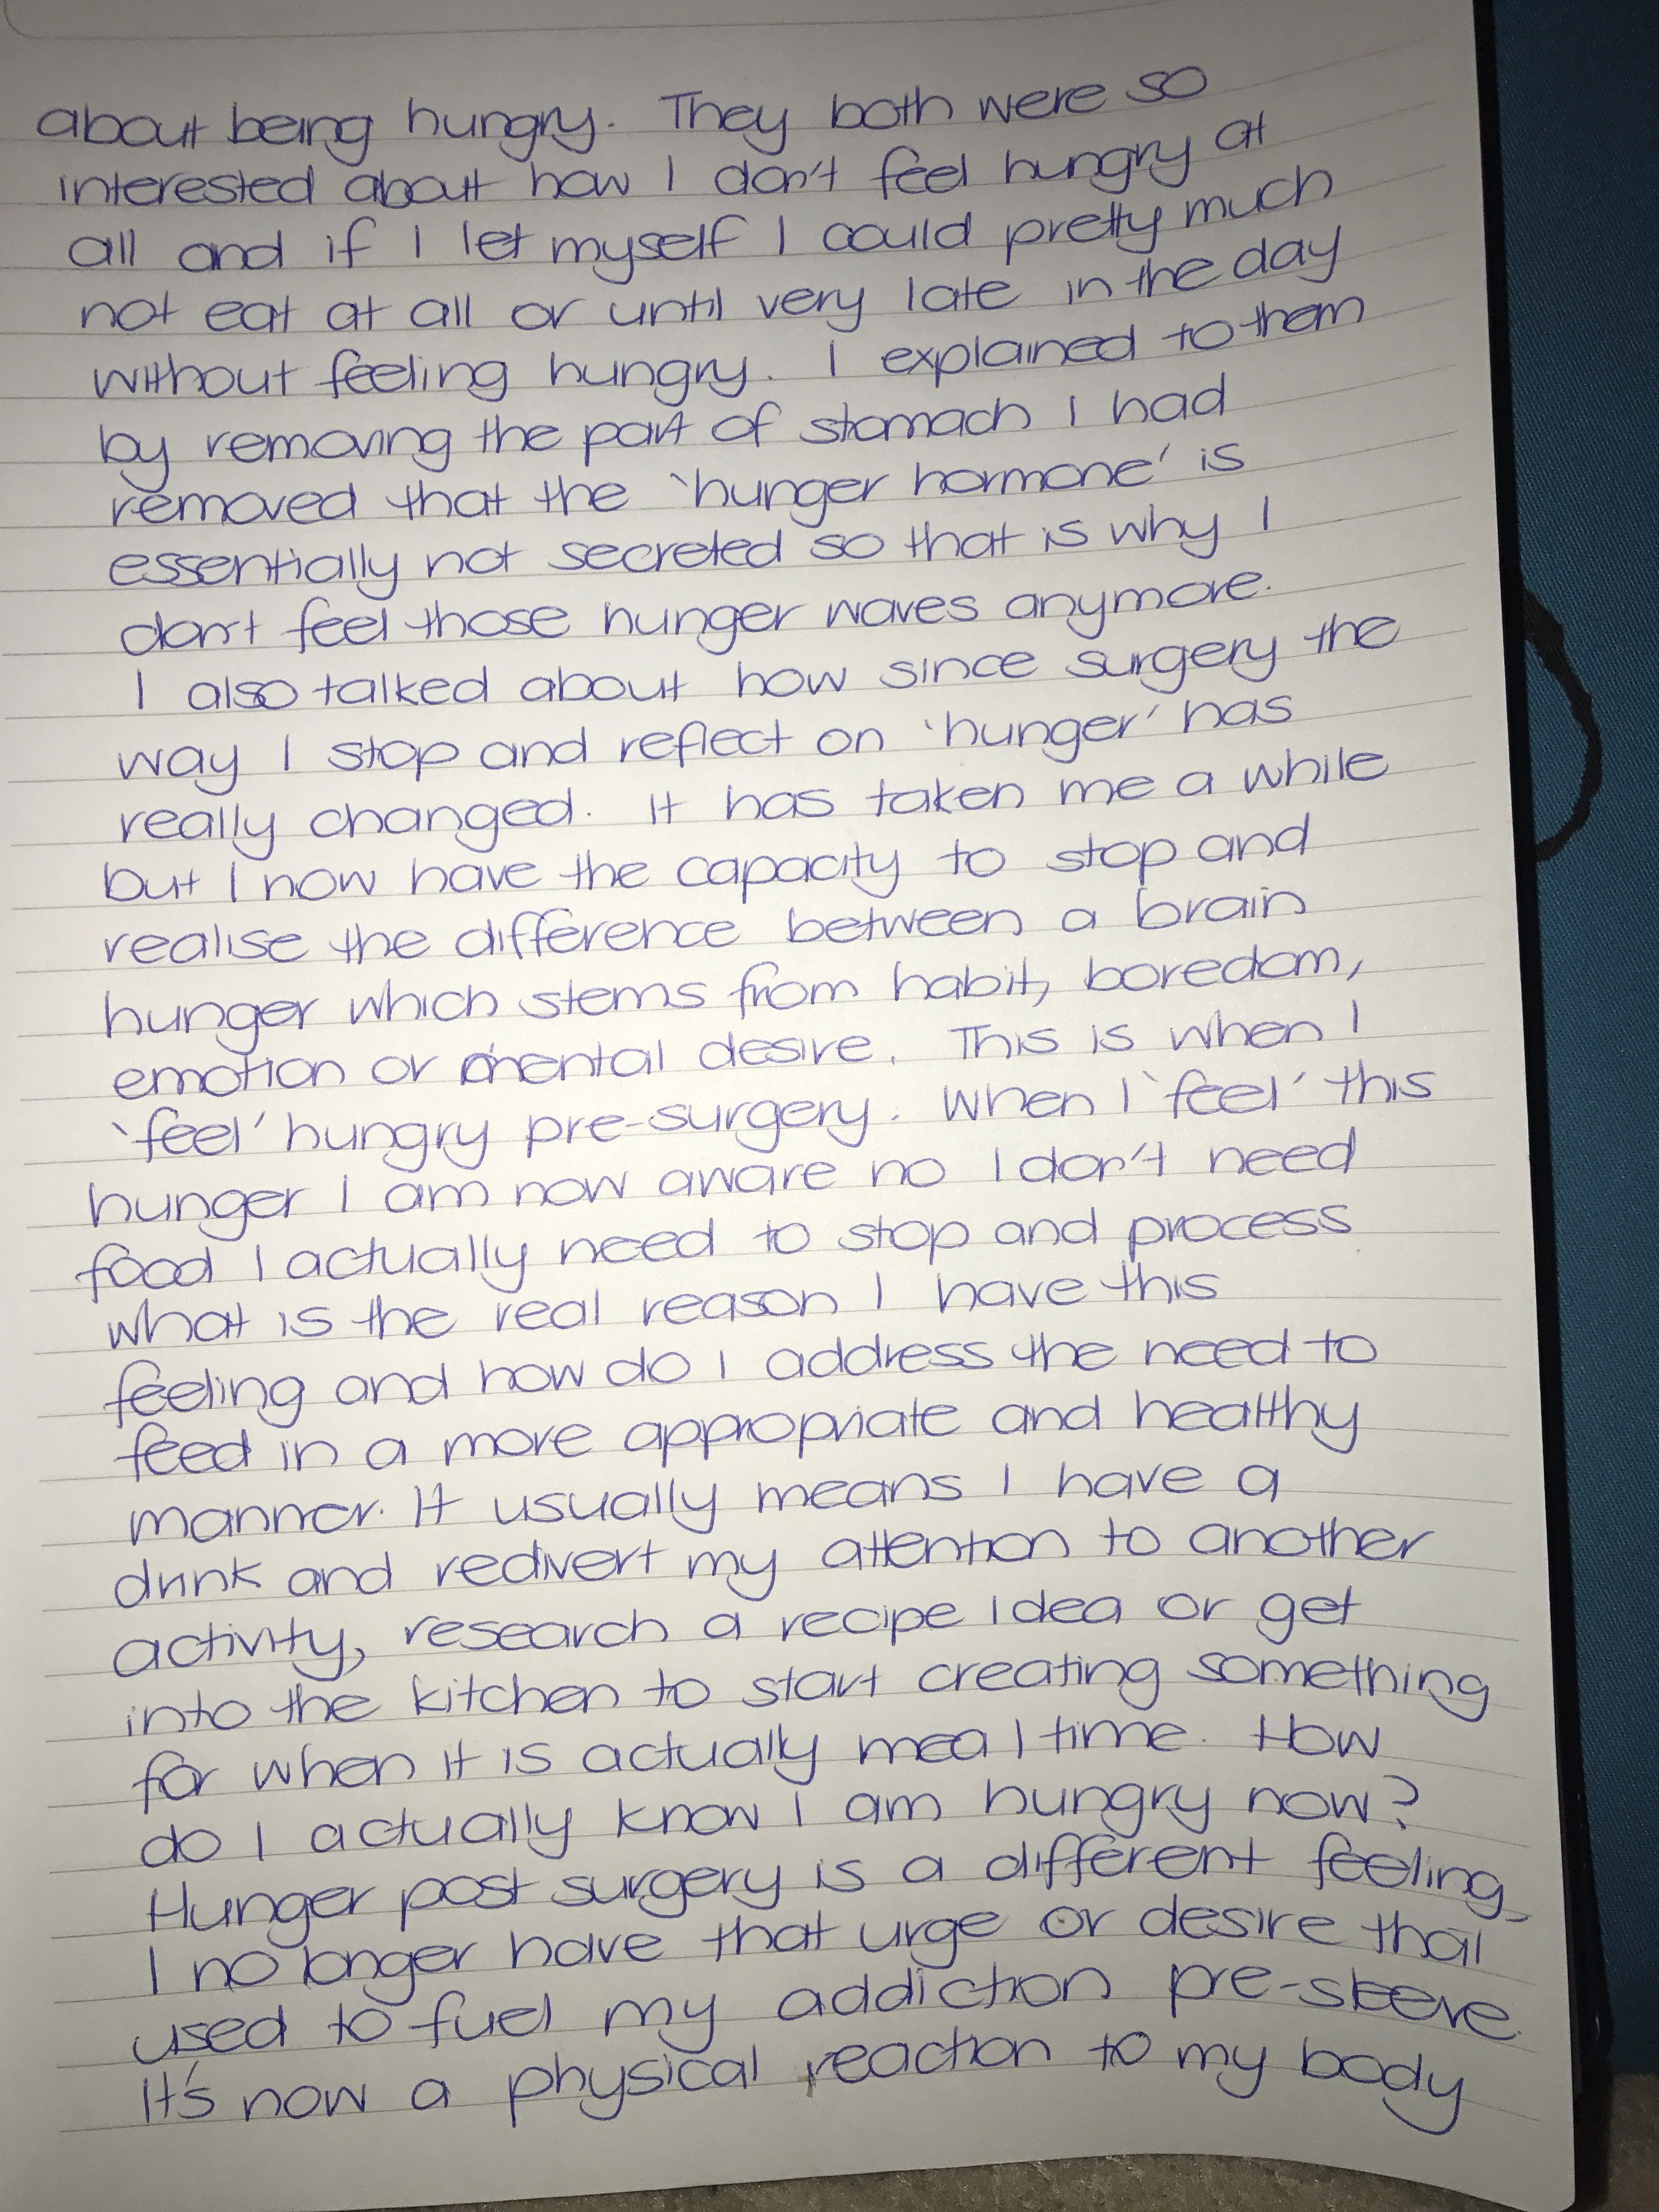 about being hungry. They both were so
interested about how I don't feel hungry at
all and if I let myself I could pretty much
not eat at all or until very late in the day
without feeling hungry. I explained to them
by removing the part of stomach I had
removed that the 'hunger hormone' is
essentially not secreted so that is why I
don't feel those hunger waves anymore.
I also talked about how since surgery the
way I stop and reflect on 'hunger' has
really changed. It has taken me a while
but I now have the capacity to stop and
realise the difference between a brain
hunger which stems from habit, boredom,
emotion or mental desire. This is when I
'feel' hungry pre-surgery. When I 'feel' this
hunger I am now aware no I don't need
food I actually need to stop and process
what is the real reason I have this
feeling and how do I address the need to
feed in a more appropriate and healthy
manner. It usually means I have a
drink and redivert my attention to another
activity, research a recipe idea or get
into the kitchen to start creating something
for when it is actually meal time. How
do I actually know I am hungry now?
Hunger post surgery is a different feeling-
I no longer have that urge or desire that
used to fuel my addiction pre-sleeve.
It's now a physical reaction to my body